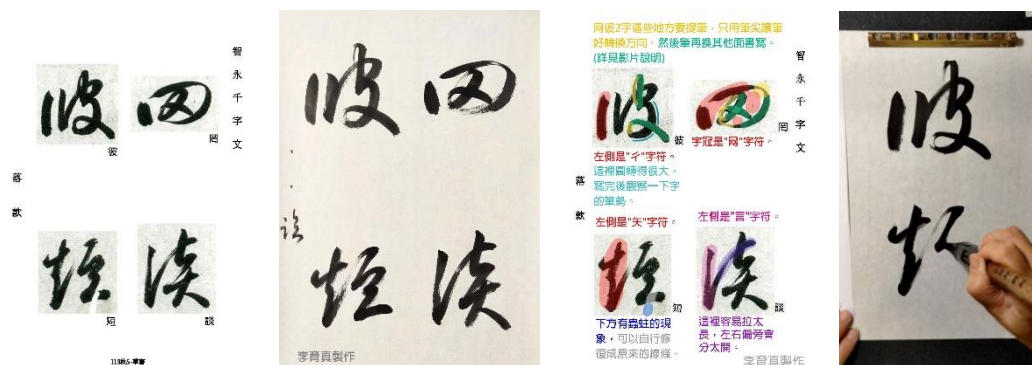 智永千字文
罔
彼
談
短
落款
113秋5-草書
罔談
彼短
李育真製作
网彼2字這些地方要提筆，只用筆尖讓筆
好轉換方向。然後筆再換其他面書寫。
(詳見影片說明)
智永千字文
彼
罔
字冠是"网"字符。
左側是"彳"字符。
這裡圓轉得很大，
寫完後觀察一下字
的筆勢。
落款
左側是"矢"字符。
左側是"言"字符。
短
談
下方有蟲蛀的現
象，可以自行修
復成原來的線條。
這裡容易拉太
長，左右偏旁會
分太開。
李育真製作
彼